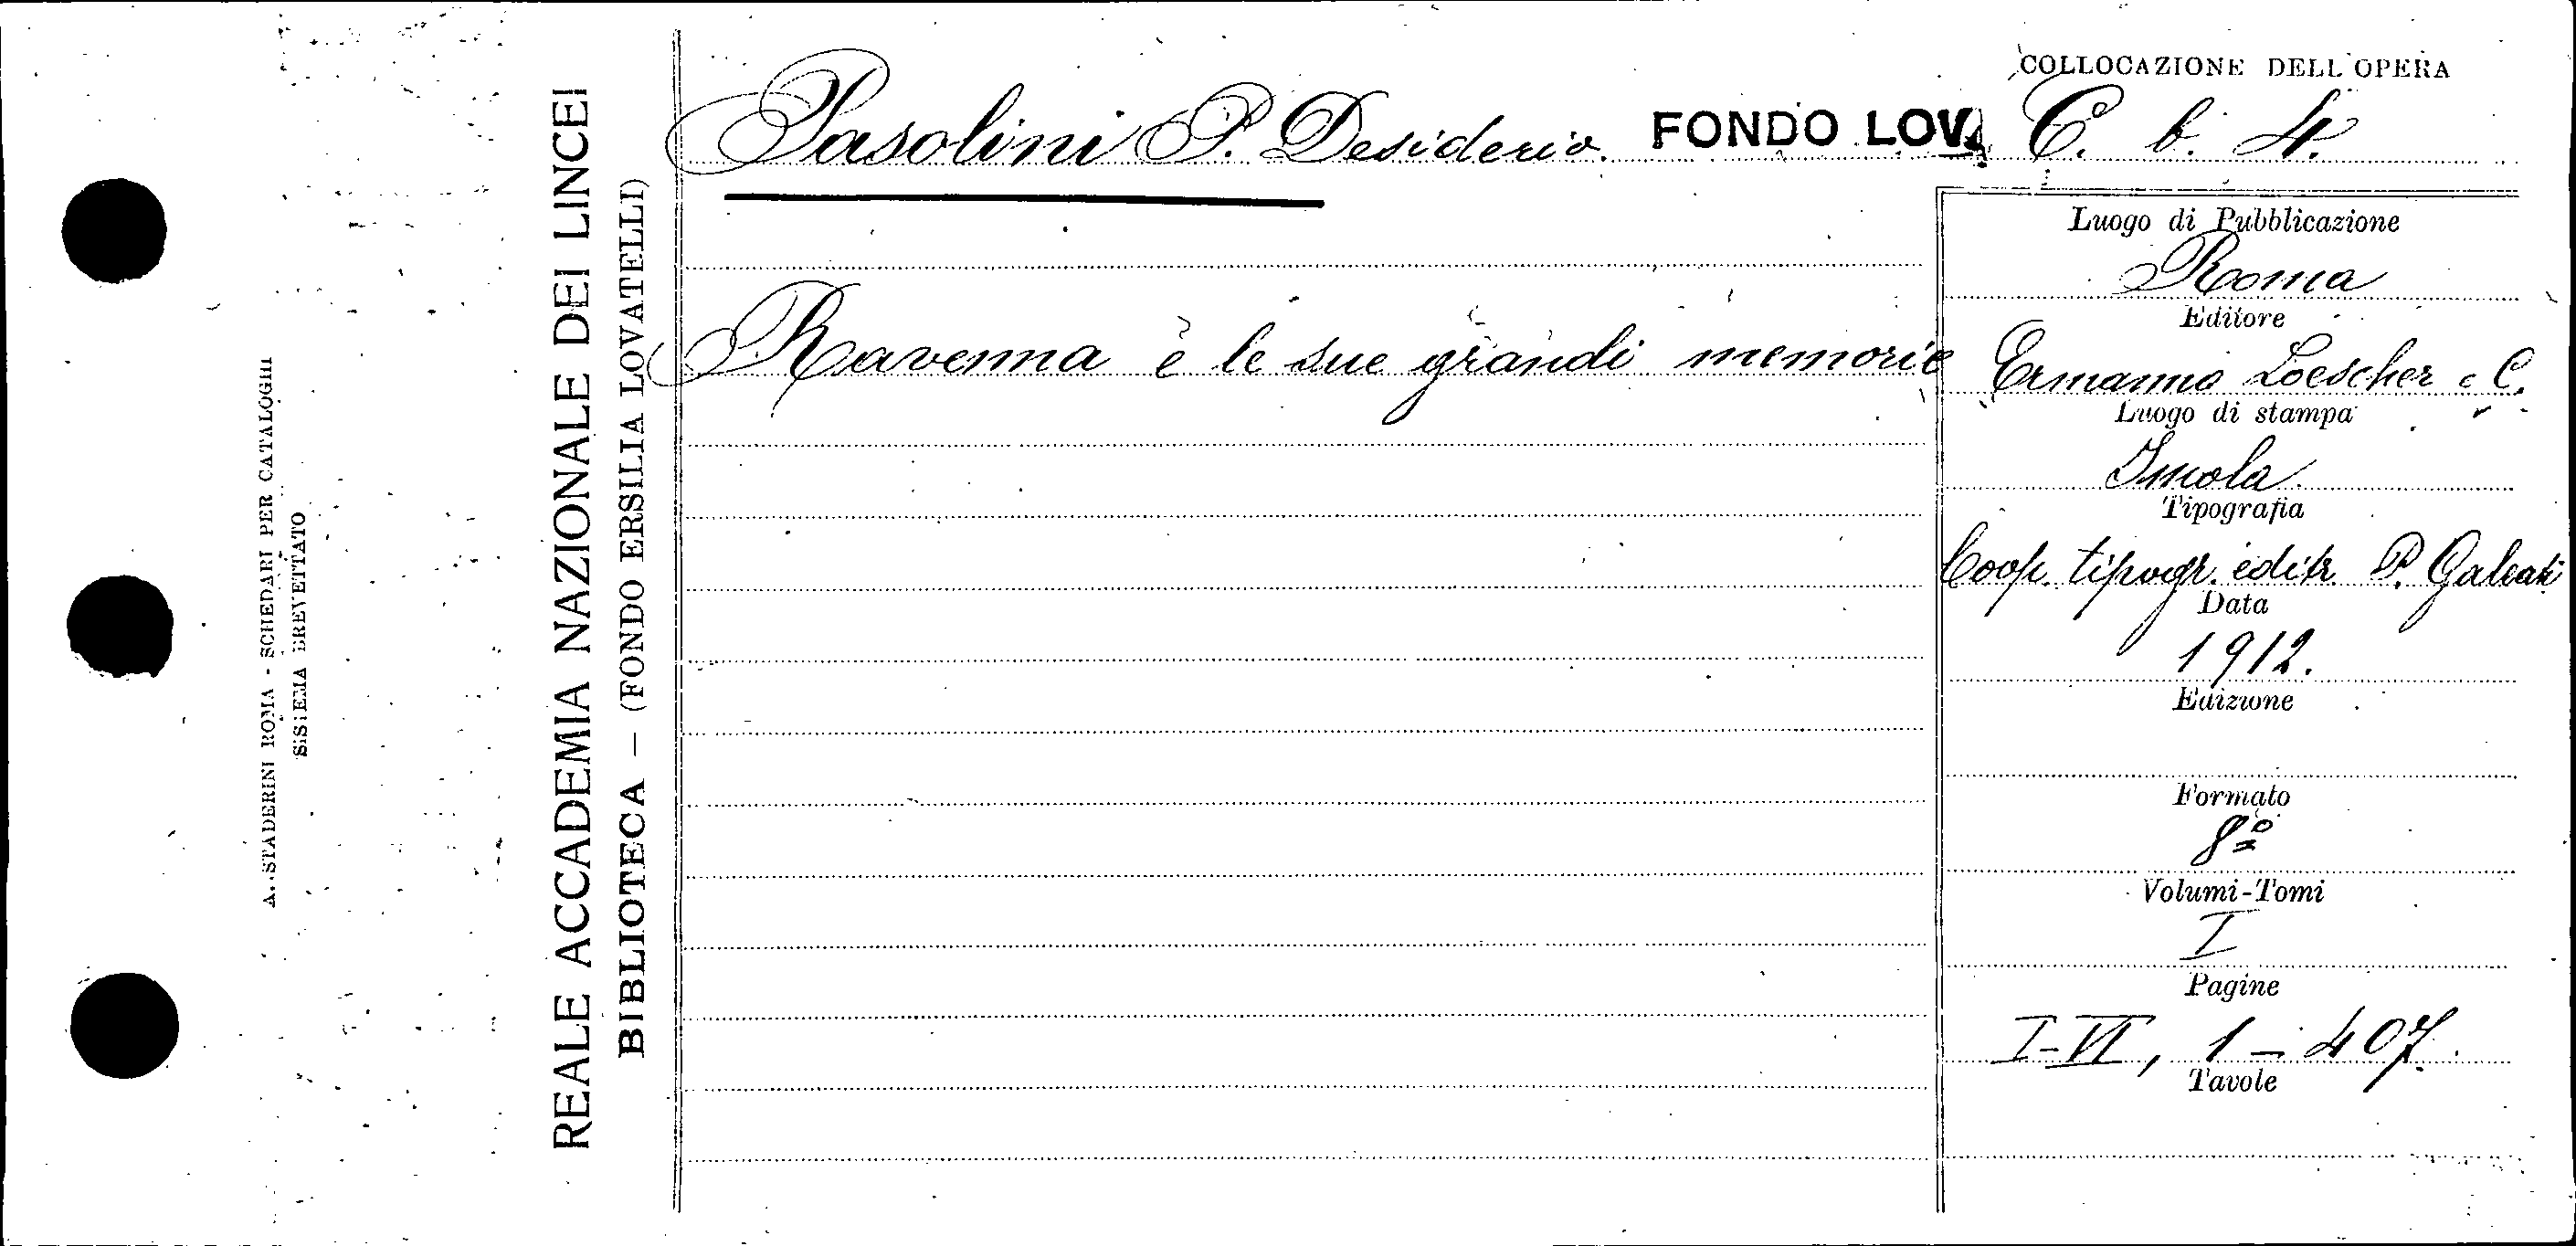 COLLOCAZIONE DELL'OPERA
Pasolini P. Desiderio. FONDO LOV. C. b. 4.
Ravenna e le sue grandi memorie
Luogo di Pubblicazione
Roma
Editore
Ermanno Loescher e C.
Luogo di stampa
Imola.
Tipografia
Coop. tipogr. editr. P. Galeati
Data
1912.
Edizione
Formato
8º
Volumi-Tomi
I
Pagine
I-VI, 1-407.
Tavole
REALE ACCADEMIA NAZIONALE DEI LINCEI
BIBLIOTECA — (FONDO ERSILIA LOVATELLI)
A. STADERINI ROMA - SCHEDARI PER CATALOGHI
SISTEMA BREVETTATO